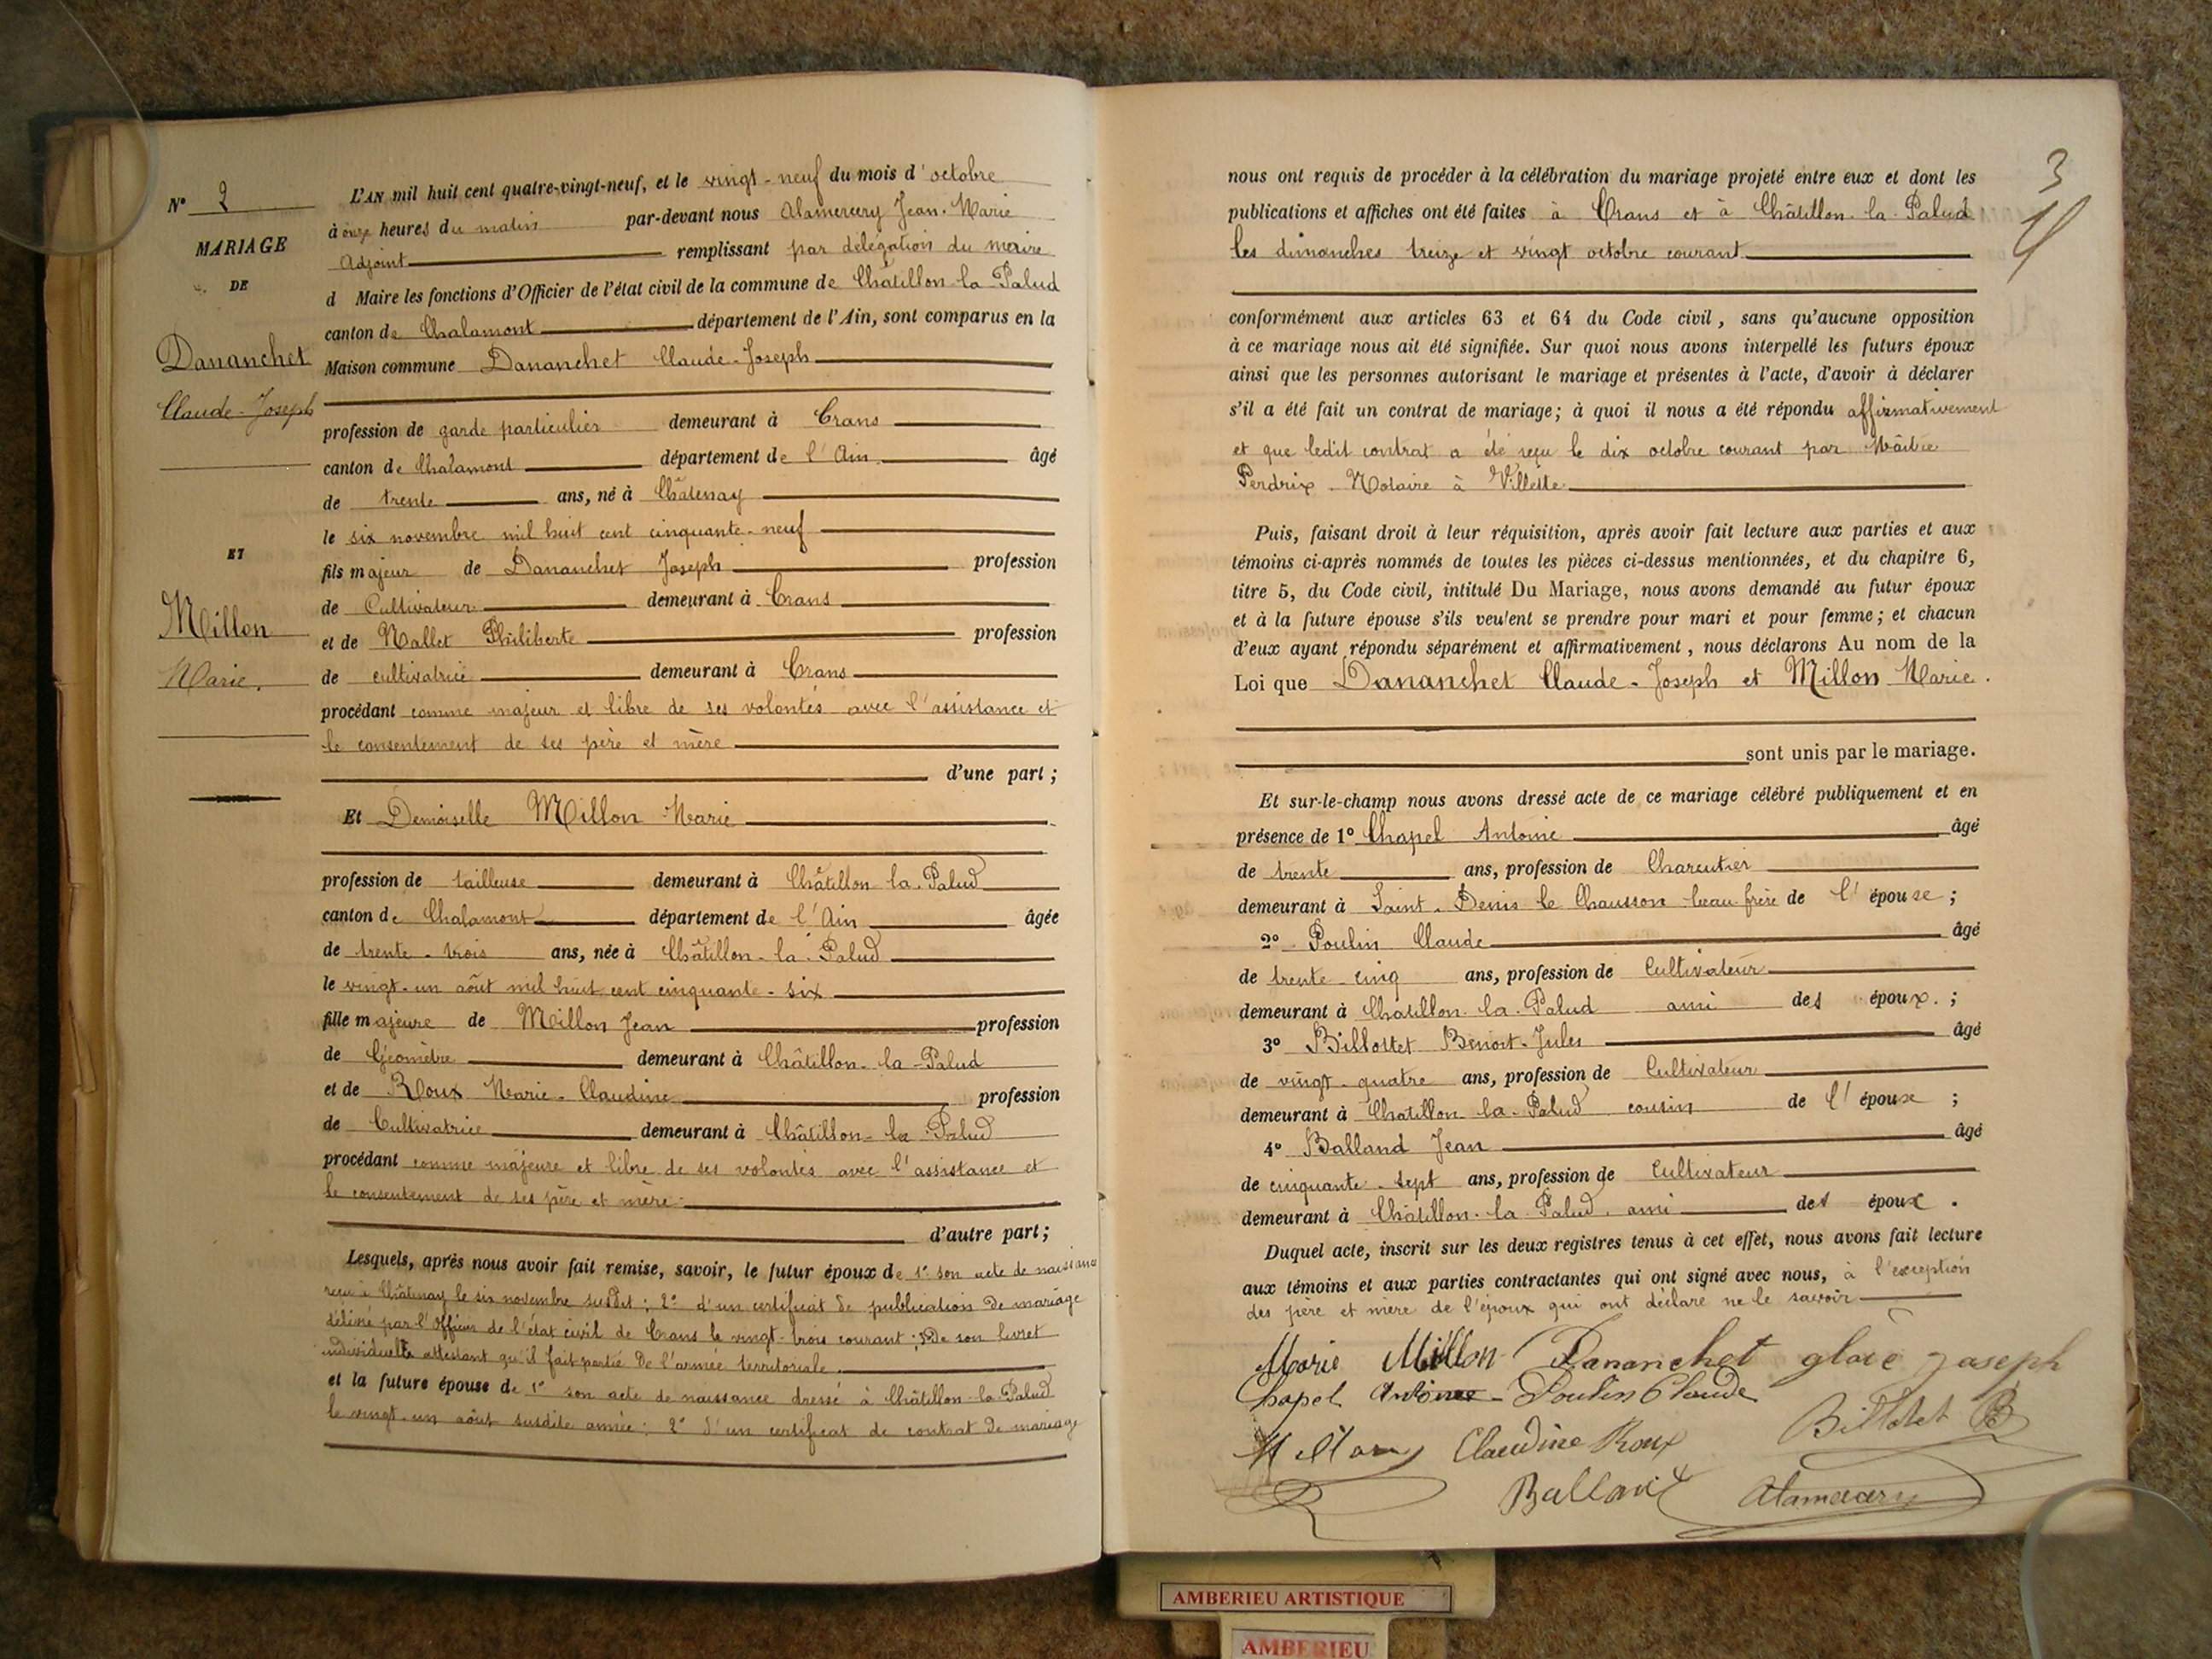 N° 2
MARIAGE
DE
Dananchet
Claude-Joseph
ET
Millon
Marie.
L'AN mil huit cent quatre-vingt-neuf, et le vingt-neuf du mois d'octobre
à onze heures du matin par-devant nous Alamercery Jean-Marie
Adjoint remplissant par délégation du maire
d Maire les fonctions d'Officier de l'état civil de la commune de Châtillon-la-Palud
canton de Chalamont département de l'Ain, sont comparus en la
Maison commune Dananchet Claude-Joseph
profession de garde particulier demeurant à Crans
canton de Chalamont département de l'Ain âgé
de trente ans, né à Châtenay
le six novembre mil huit cent cinquante-neuf
fils majeur de Dananchet Joseph profession
de Cultivateur demeurant à Crans
et de Mallet Philiberte profession
de cultivatrice demeurant à Crans
procédant comme majeur et libre de ses volontés avec l'assistance et
le consentement de ses père et mère
d'une part ;
Et Demoiselle Millon Marie
profession de tailleuse demeurant à Châtillon-la-Palud
canton de Chalamont département de l'Ain âgée
de trente-trois ans, née à Châtillon-la-Palud
le vingt-un août mil huit cent cinquante-six
fille majeure de Millon Jean profession
de Géomètre demeurant à Châtillon-la-Palud
et de Roux Marie-Claudine profession
de Cultivatrice demeurant à Châtillon-la-Palud
procédant comme majeure et libre de ses volontés avec l'assistance et
le consentement de ses père et mère
d'autre part ;
Lesquels, après nous avoir fait remise, savoir, le futur époux de 1° son acte de naissance
reçu à Châtenay le six novembre susdit ; 2° d'un certificat de publication de mariage
délivré par l'officier de l'état civil de Crans le vingt-trois courant ; 3° de son livret
individuel attestant qu'il fait partie de l'armée territoriale.
et la future épouse de 1° son acte de naissance dressé à Châtillon-la-Palud
le vingt-un août susdite année ; 2° d'un certificat de contrat de mariage
3
nous ont requis de procéder à la célébration du mariage projeté entre eux et dont les
publications et affiches ont été faites à Crans et à Châtillon-la-Palud
les dimanches treize et vingt octobre courant
conformément aux articles 63 et 64 du Code civil, sans qu'aucune opposition
à ce mariage nous ait été signifiée. Sur quoi nous avons interpellé les futurs époux
ainsi que les personnes autorisant le mariage et présentes à l'acte, d'avoir à déclarer
s'il a été fait un contrat de mariage ; à quoi il nous a été répondu affirmativement
et que ledit contrat a été reçu le dix octobre courant par Maître
Perdrix Notaire à Villette
Puis, faisant droit à leur réquisition, après avoir fait lecture aux parties et aux
témoins ci-après nommés de toutes les pièces ci-dessus mentionnées, et du chapitre 6,
titre 5, du Code civil, intitulé Du Mariage, nous avons demandé au futur époux
et à la future épouse s'ils veulent se prendre pour mari et pour femme ; et chacun
d'eux ayant répondu séparément et affirmativement, nous déclarons Au nom de la
Loi que Dananchet Claude-Joseph et Millon Marie.
sont unis par le mariage.
Et sur-le-champ nous avons dressé acte de ce mariage célébré publiquement et en
présence de 1° Chapel Antoine âgé
de trente ans, profession de Charcutier
demeurant à Saint-Denis le Chausson beau-frère de l'épouse ;
2° Poulin Claude âgé
de trente-cinq ans, profession de Cultivateur
demeurant à Châtillon-la-Palud ami des époux. ;
3° Billottet Benoît-Jules âgé
de vingt-quatre ans, profession de Cultivateur
demeurant à Chatillon-la-Palud cousin de l'épouse ;
4° Balland Jean âgé
de cinquante-sept ans, profession de Cultivateur
demeurant à Châtillon-la-Palud ami des époux.
Duquel acte, inscrit sur les deux registres tenus à cet effet, nous avons fait lecture
aux témoins et aux parties contractantes qui ont signé avec nous, à l'exception
des père et mère de l'époux qui ont déclaré ne le savoir
Marie Millon Dananchet glaie joseph
Chapel Antoine Poulin Claude
Billotet B
Millon Claudine Roux
Balland Alamercery
AMBERIEU ARTISTIQUE
AMBERIEU